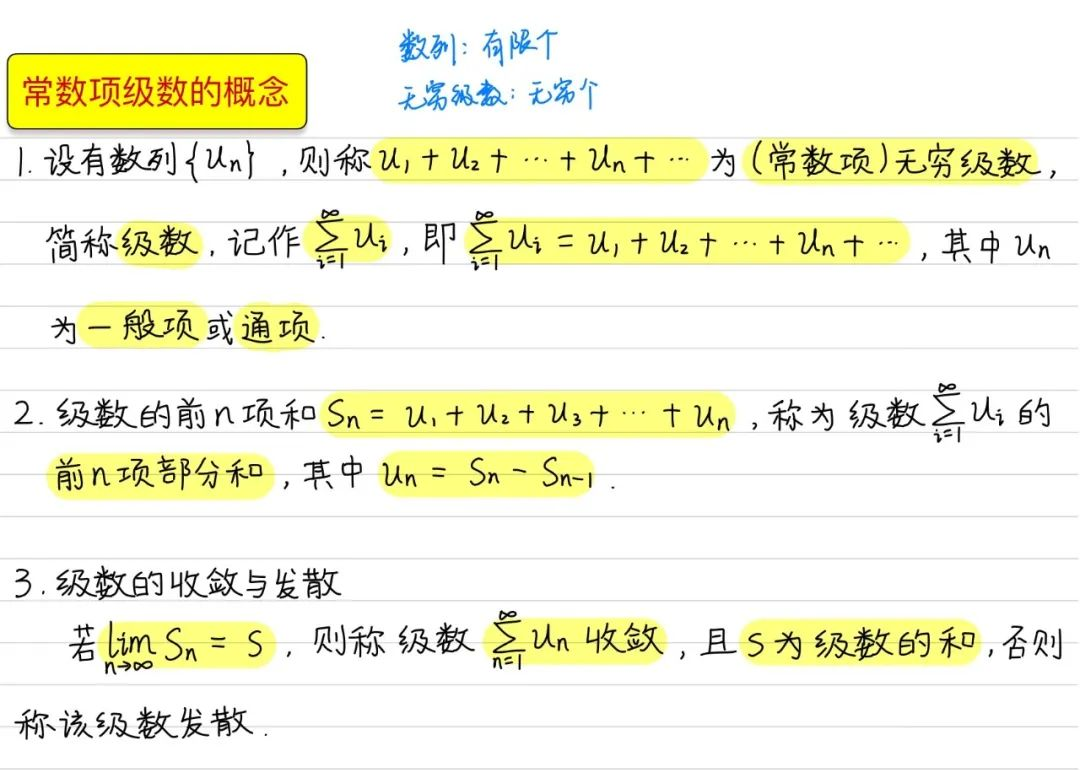 数列：有限个
无穷级数：无穷个
常数项级数的概念
1. 设有数列{Un}，则称 U₁ + U₂ + ⋯ + Un + ⋯ 为（常数项）无穷级数，
简称级数，记作 ∑_{i=1}^{∞} Ui，即 ∑_{i=1}^{∞} Ui = U₁ + U₂ + ⋯ + Un + ⋯，其中 Un
为一般项或通项.
2. 级数的前n项和 Sn = U₁ + U₂ + U₃ + ⋯ + Un，称为级数 ∑_{i=1}^{∞} Ui 的
前n项部分和，其中 Un = Sn - Sn-1.
3. 级数的收敛与发散
若 lim_{n→∞} Sn = S，则称级数 ∑_{n=1}^{∞} Un 收敛，且 S 为级数的和，否则
称该级数发散.